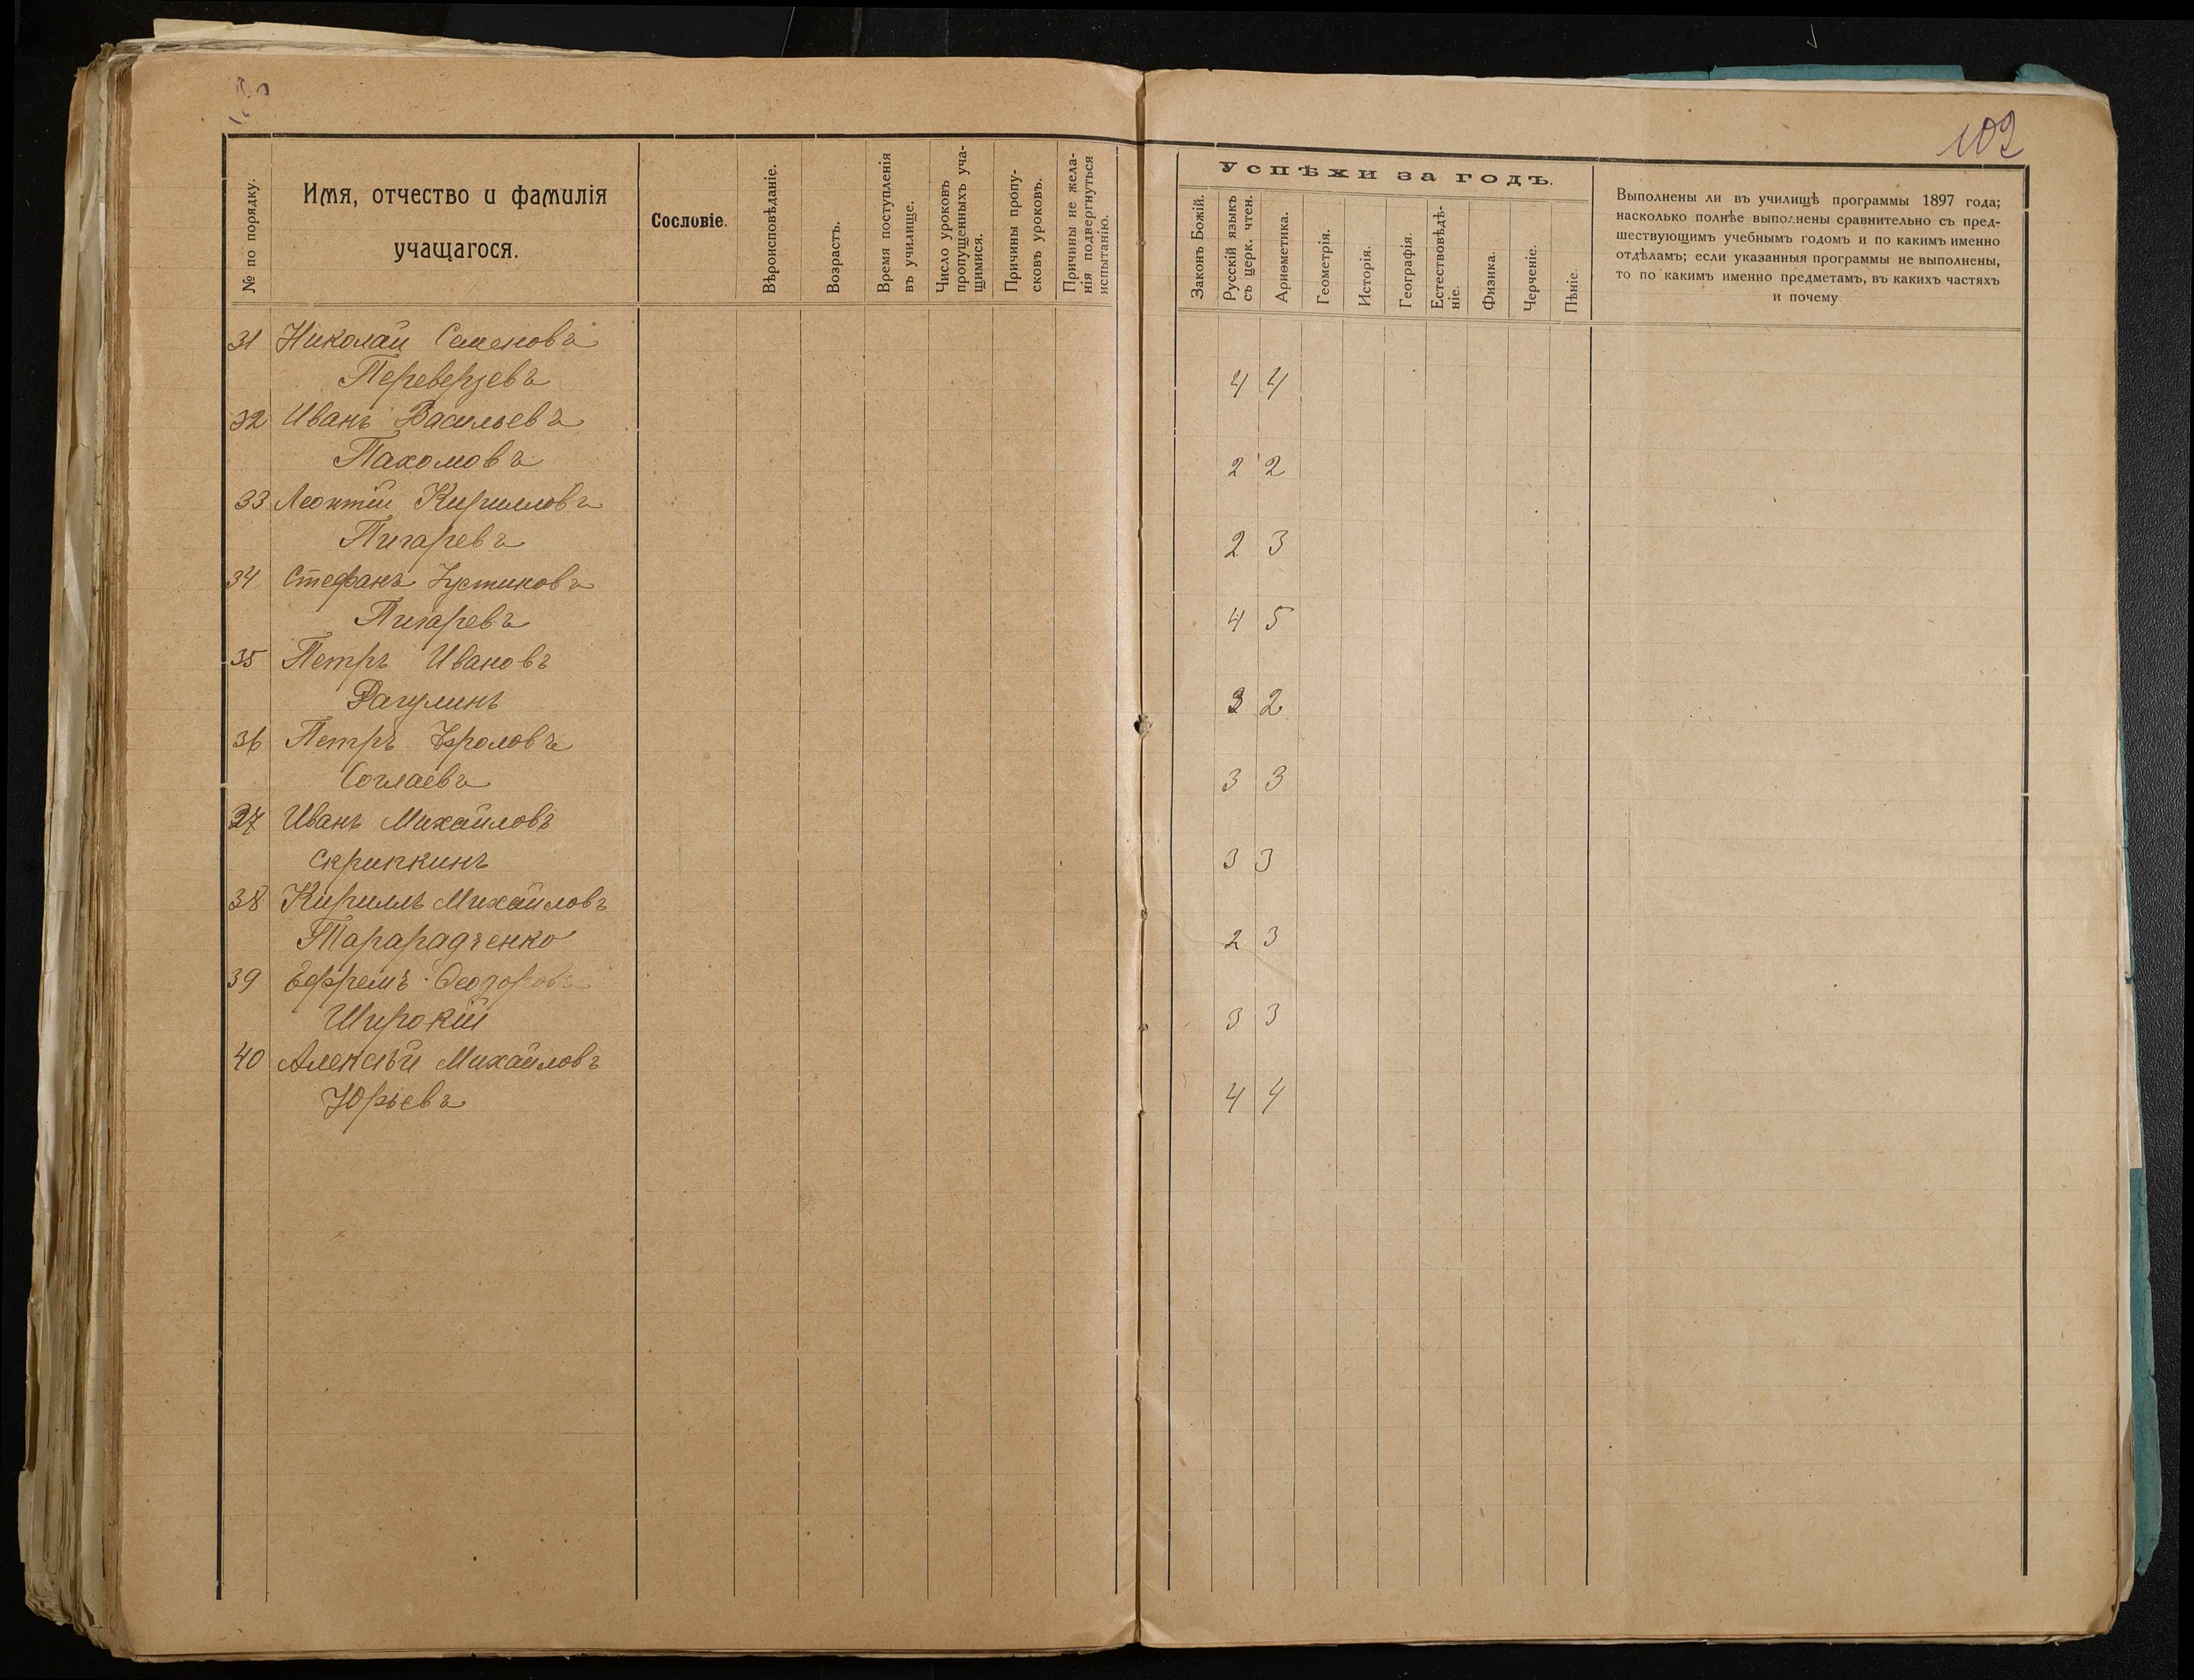 102
№ по порядку.
Имя, отчество и фамилія
учащагося.
Сословіе.
Вѣроисповѣданіе.
Возрастъ.
Время поступленія
въ училище.
Число уроковъ
пропущенныхъ уча-
щимися.
Причины пропу-
сковъ уроковъ.
Причины не жела-
нія подвергнуться
испытанію.
Успѣхи за годъ.
Законъ Божій.
Русскій языкъ
съ церк. чтен.
Ариѳметика.
Геометрія.
Исторія.
Географія.
Естествовѣдѣ-
ніе.
Физика.
Черченіе.
Пѣніе.
Выполнены ли въ училищѣ программы 1897 года;
насколько полнѣе выполнены сравнительно съ пред-
шествующимъ учебнымъ годомъ и по какимъ именно
отдѣламъ; если указанныя программы не выполнены,
то по какимъ именно предметамъ, въ какихъ частяхъ
и почему
31 Николай Семеновъ
Переверзевъ 4 4
32 Иванъ Васильевъ
Пахомовъ 2 2
33 Леонтій Кирилловъ
Пигаревъ 2 3
34 Стефанъ Устиновъ
Пигаревъ 4 5
35 Петръ Ивановъ
Рагулинъ 3 2
36 Петръ Фроловъ
Соглаевъ 3 3
37 Иванъ Михайловъ
Скрипкинъ 3 3
38 Кириллъ Михайловъ
Тарарадзенко 2 3
39 Ефремъ Ѳеодоровъ
Широкій 3 3
40 Алексѣй Михайловъ
Юрьевъ 4 4